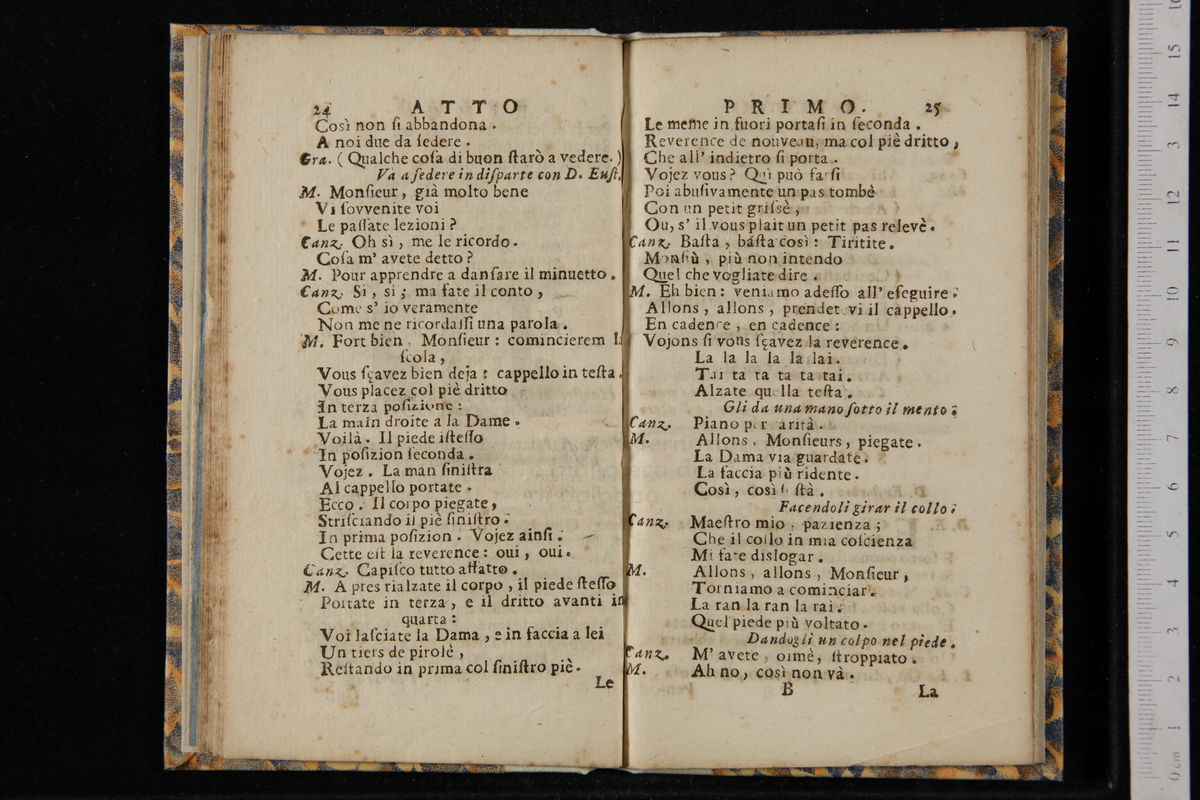 24 ATTO
Così non ſi abbandona.
A noi due da ſedere.
Gra. (Qualche coſa di buon ſtarò a vedere.)
Va a ſedere in diſparte con D. Euſt.
M. Monſieur, già molto bene
Vi ſovvenite voi
Le paſſate lezioni?
Canz. Oh sì, me le ricordo.
Coſa m' avete detto?
M. Pour apprendre a danſare il minuetto.
Canz. Si, si; ma fate il conto,
Come s' io veramente
Non me ne ricordaſſi una parola.
M. Fort bien, Monſieur: comincierem la
ſcola,
Vous ſçavez bien deja: cappello in teſta.
Vous placez col piè dritto
In terza poſizione:
La main droite a la Dame.
Voilà. Il piede iſteſſo
In poſizion ſeconda.
Vojez. La man ſiniſtra
Al cappello portate.
Ecco. Il corpo piegate,
Striſciando il piè ſiniſtro.
In prima poſizion. Vojez ainſi.
Cette eſt la reverence: oui, oui.
Canz. Capiſco tutto affatto.
M. A pres rialzate il corpo, il piede ſteſſo
Portate in terza, e il dritto avanti in
quarta:
Voi laſciate la Dama, e in faccia a lei
Un tiers de pirolè,
Reſtando in prima col ſiniſtro piè.
Le
PRIMO. 25
Le meme in fuori portaſi in ſeconda.
Reverence de nouveau, ma col piè dritto,
Che all' indietro ſi porta.
Vojez vous? Qui può farſi
Poi abuſivamente un pas tombè
Con un petit griſsè,
Ou, s' il vous plait un petit pas relevè.
Canz. Baſta, báſta così: Tiritite.
Monſiù, più non intendo
Quel che vogliate dire.
M. Eh bien: veniamo adeſſo all' eſeguire.
Allons, allons, prendetevi il cappello.
En cadence, en cadence:
Vojons ſi vous ſçavez la reverence.
La la la la la lai.
Tai ta ta ta ta tai.
Alzate quella teſta.
Gli da una mano ſotto il mento.
Canz. Piano per carità.
M. Allons, Monſieurs, piegate.
La Dama via guardate.
La faccia più ridente.
Così, così ſi ſtà.
Facendoli girar il collo.
Canz. Maeſtro mio, pazienza;
Che il collo in mia coſcienza
Mi fate dislogar.
M. Allons, allons, Monſieur,
Torniamo a cominciar.
La ran la ran la rai.
Quel piede più voltato.
Dandogli un colpo nel piede.
Canz. M' avete, oimè, ſtroppiato.
M. Ah no, così non và.
B La